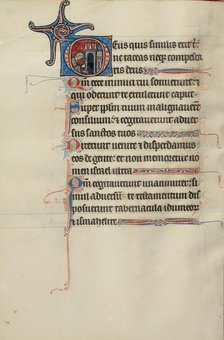 Deus quis similis erit t
ne taceas neqz compesca
ris deus
Qm ecce inimici tui sonuerunt:
qui oderunt te extulerunt caput
Super pplm tuum malignauert
consilium: & cogitauerunt aduer
sus sanctos tuos
Dixerunt uenite & disperdamus
eos de gente: et non memoretur no
men israel ultra
Qm cogitauerunt unanimiter: si
mul aduersum te testamentum dis
posuerunt tabernacula idumeor
& ismahelite